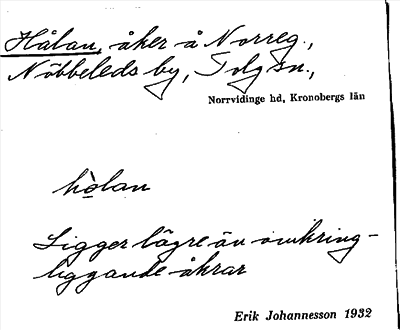 Hålan, åker å Norreg.,
Nöbbeleds by, Tolg sn.,
Norrvidinge hd, Kronobergs län
hò̲lan
Ligger lägre än omkring-
liggande åkrar
Erik Johannesson 1932